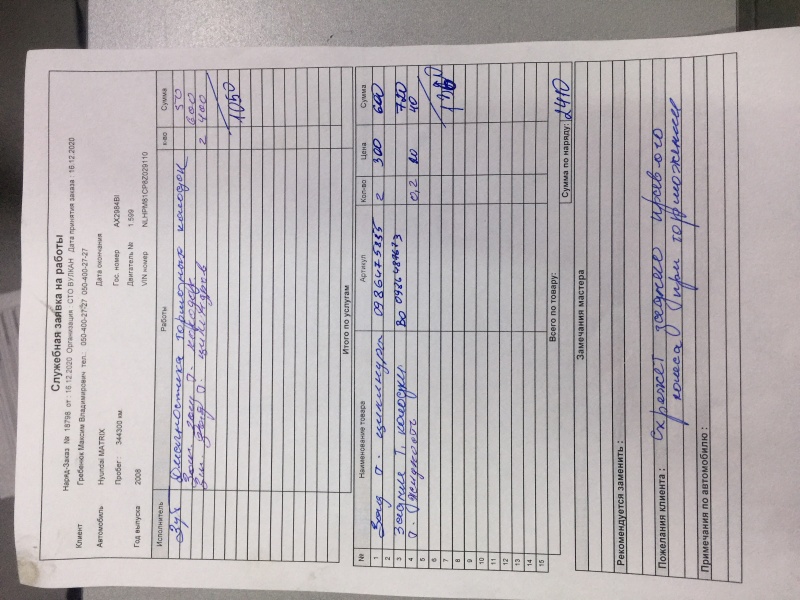 Служебная заявка на работы
Наряд-Заказ № 18798 от : 16.12.2020 Организация СТО ВУЛКАН Дата принятия заказа : 16.12.2020
Клиент Гребенюк Максим Владимирович тел.: 050-400-27-27 090-400-27-27
Автомобиль Hyundai MATRIX Дата окончания
Пробег : 344300 км. Гос. номер AX2984BI
Двигатель № 1,599
Год выпуска 2008 VIN номер NLHPM81CP8Z029110
Исполнитель Работы к-во Сумма
Зуб Диагностика тормозных колодок 50
Зам. зад т. колодок 600
Зам. зад т. цилиндров 2 400
1050
Итого по услугам
№ Наименование товара Артикул Кол-во Цена Сумма
1 Зад т. цилиндра 0986475835 2 300 600
2
3 Задние т. колодки BO 0986487673 720
4 т. жидкость 0,2 40
5
6
7
8
9
10
11
12
13
14
15
Всего по товару:
Сумма по наряду: 2410
Замечания мастера
Рекомендуется заменить :
Пожелания клиента : Скрежет заднего правого
колеса при торможении
Примечания по автомобилю :